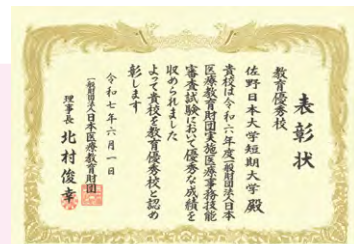 表彰状
教育優秀校
佐野日本大学短期大学 殿
貴校は令和六年度一般財団法人日本
医療教育財団実施医療事務技能
審査試験において優秀な成績を
収められました
よって貴校を教育優秀校と認め
彰します
令和七年六月一日
一般財団法人日本医療教育財団
理事長 北村俊幸